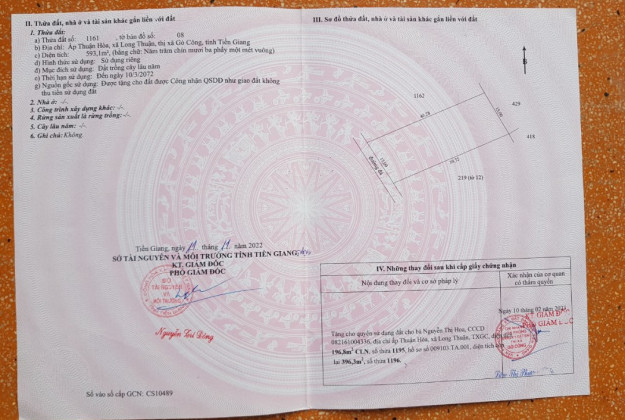 II. Thửa đất, nhà ở và tài sản khác gắn liền với đất
1. Thửa đất:
a) Thửa đất số: 1161 , tờ bản đồ số: 08
b) Địa chỉ: Ấp Thuận Hòa, xã Long Thuận, thị xã Gò Công, tỉnh Tiền Giang
c) Diện tích: 593,1m², (bằng chữ: Năm trăm chín mươi ba phẩy một mét vuông)
d) Hình thức sử dụng: Sử dụng riêng
đ) Mục đích sử dụng: Đất trồng cây lâu năm
e) Thời hạn sử dụng: Đến ngày 10/3/2072
g) Nguồn gốc sử dụng: Được tặng cho đất được Công nhận QSDĐ như giao đất không
thu tiền sử dụng đất
2. Nhà ở: -/-
3. Công trình xây dựng khác: -/-
4. Rừng sản xuất là rừng trồng: -/-
5. Cây lâu năm: -/-
6. Ghi chú: Không
Tiền Giang, ngày 11 tháng 11 năm 2022
SỞ TÀI NGUYÊN VÀ MÔI TRƯỜNG TỈNH TIỀN GIANG
KT. GIÁM ĐỐC
PHÓ GIÁM ĐỐC
SỞ
TÀI NGUYÊN
VÀ
MÔI TRƯỜNG
Số vào sổ cấp GCN: CS10489
III. Sơ đồ thửa đất, nhà ở và tài sản khác gắn liền với đất
B
1162
429
418
đường đá
219 (tờ 12)
IV. Những thay đổi sau khi cấp giấy chứng nhận
Nội dung thay đổi và cơ sở pháp lý
Xác nhận của cơ quan
có thẩm quyền
Ngày 10 tháng 03
Tặng cho quyền sử dụng đất cho bà Nguyễn Thị Hoa, CCCD
082161004336, địa chỉ ấp Thuận Hòa, xã Long Thuận, TXGC, diện tích
196,8m² CLN, số thửa 1195, hồ sơ số 009103.TA.001, diện tích còn
lại 396,3m², số thửa 1196.